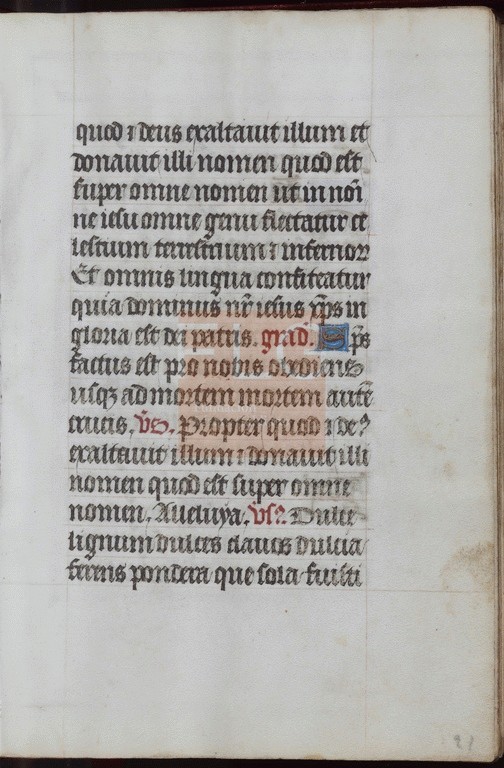 quod ⁊ deus exaltauit illum et
donauit illi nomen quod est
super omne nomen ut in nōi
ne iesu omne genu flectatur ce
lestium terrestrium ⁊ infernorꝝ
Et omnis lingua confiteatur
quia dominus nr̄ iesus xp̄s in
gloria est dei patris. grad. Xp̄s
factus est pro nobis obediens
usqꝫ ad mortem mortem autē
crucis. v̄s. Propter quod ⁊ de⁹
exaltauit illum ⁊ donauit illi
nomen quod est super omne
nomen. Alleluya. vs̄. Dulce
lignum dulces clauos dulcia
ferens pondera que sola fuisti
21